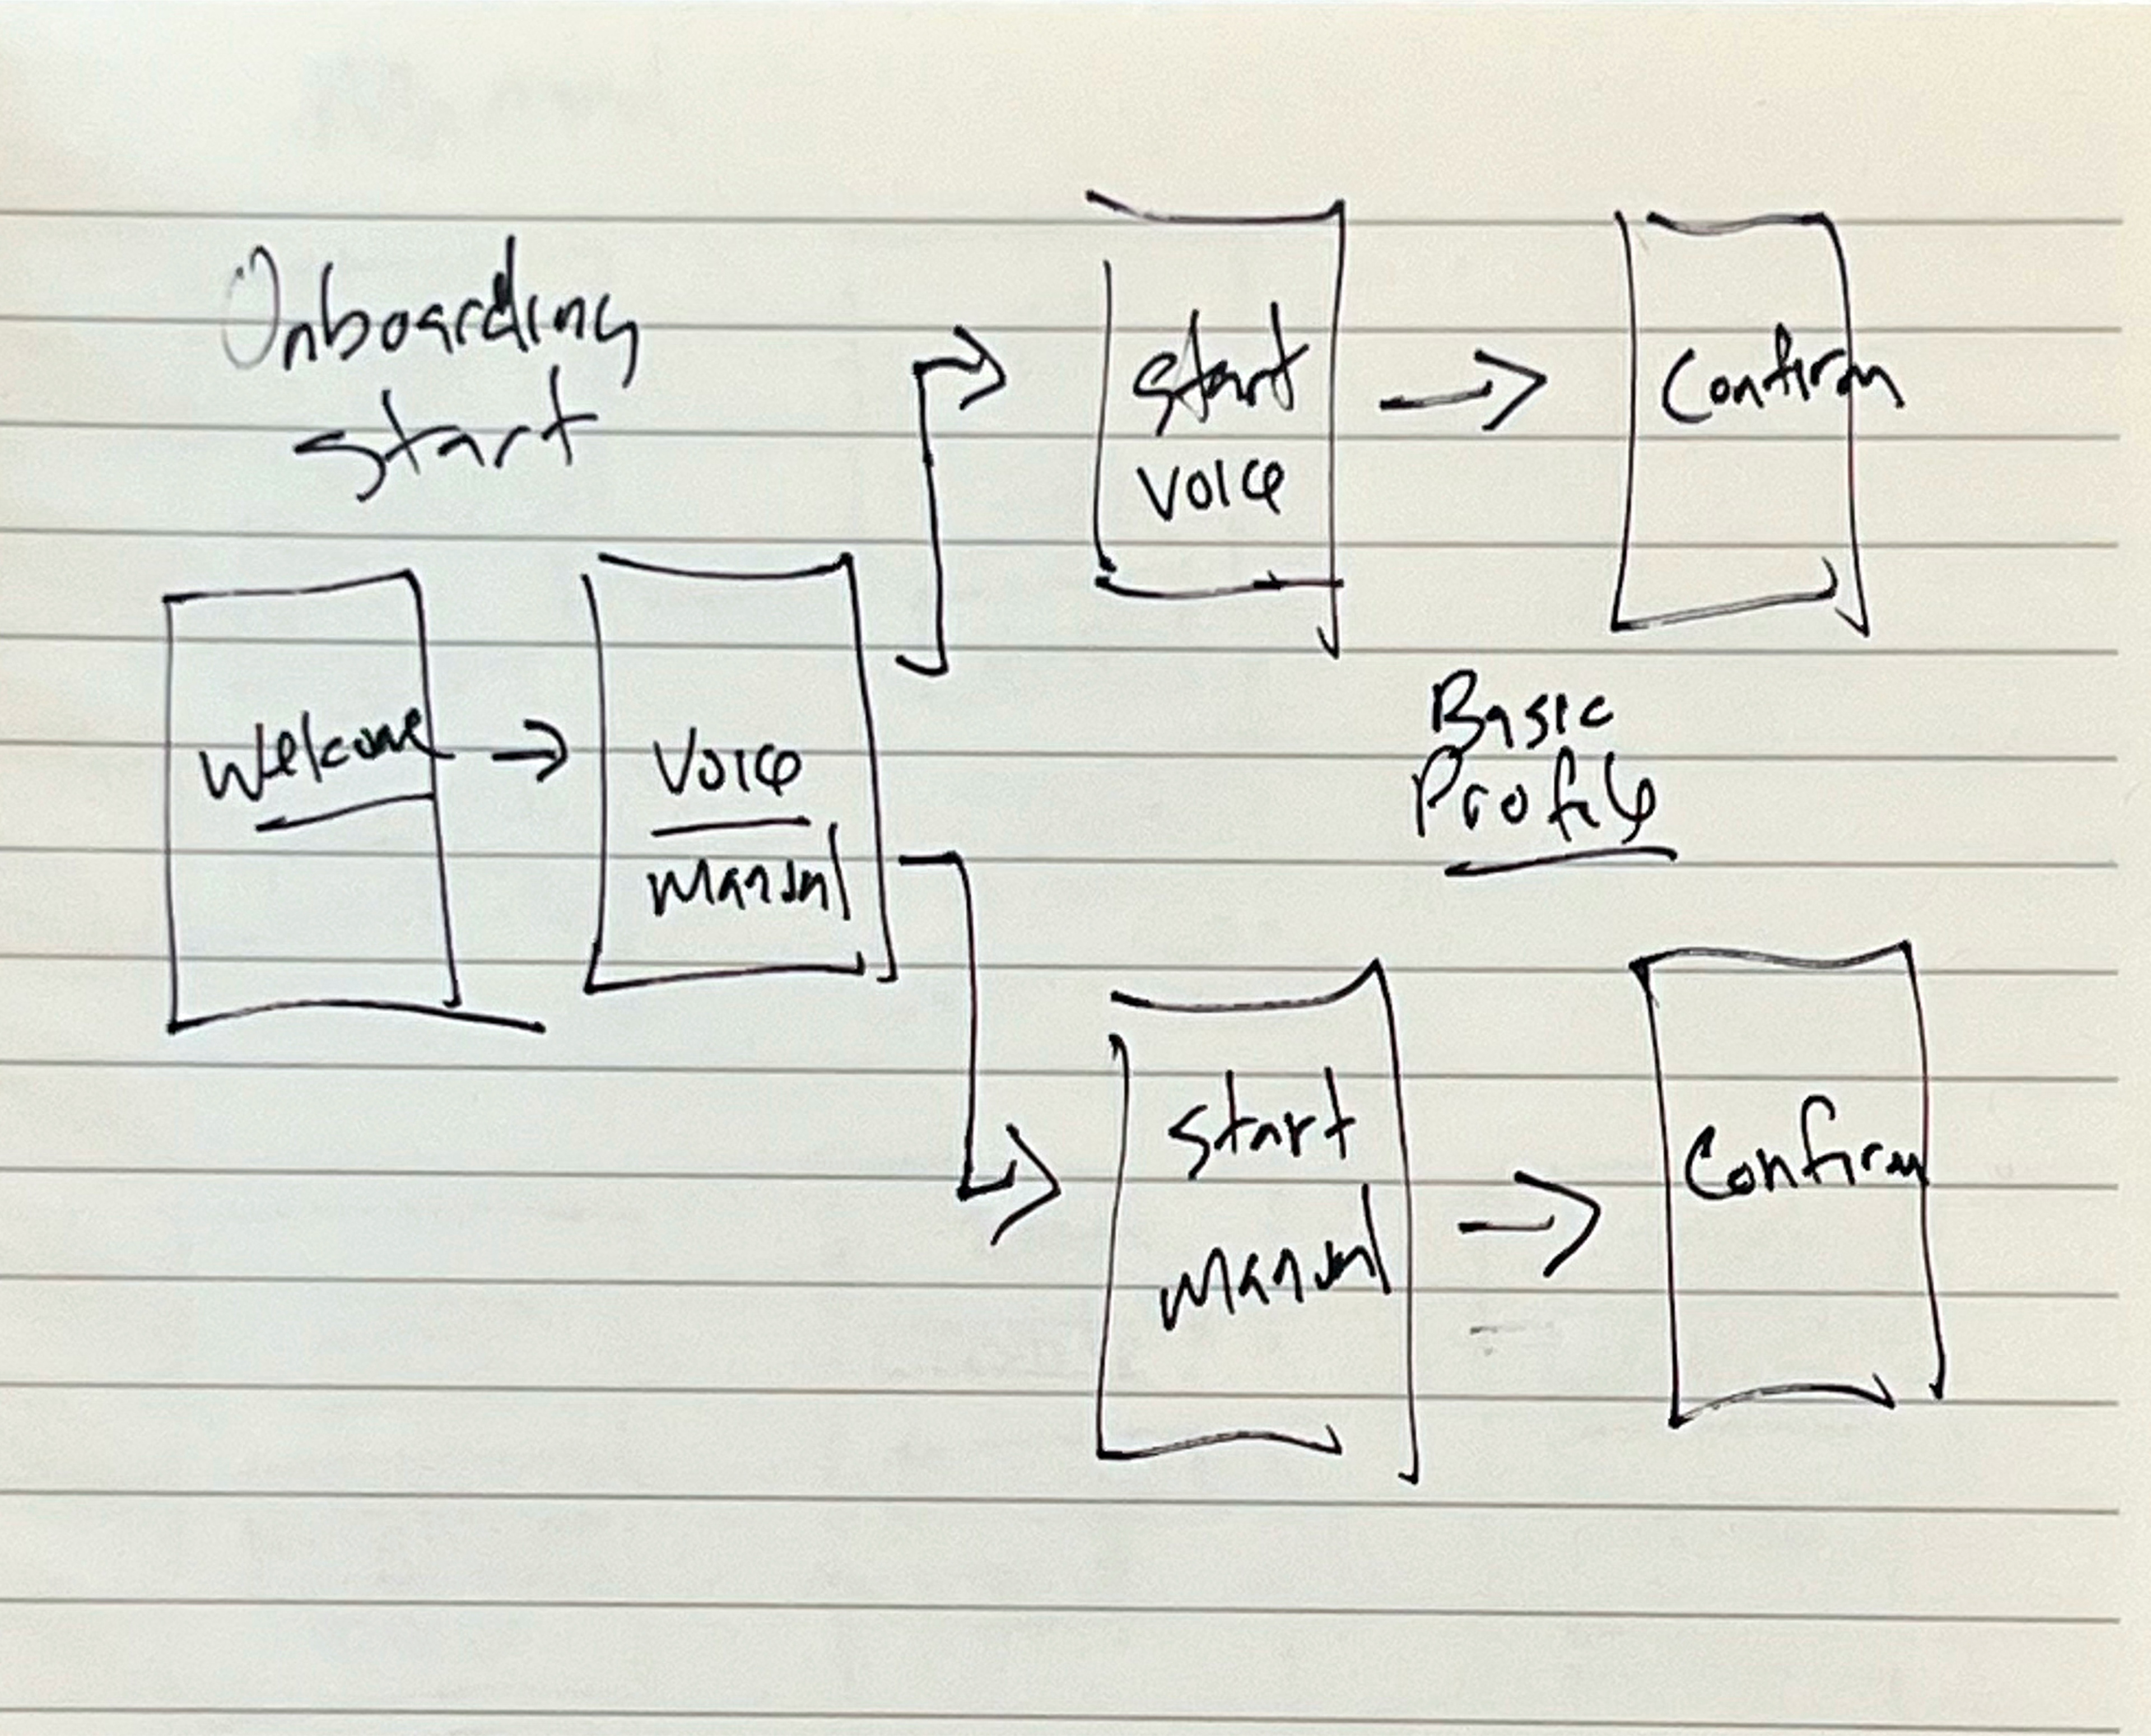 Onboarding
start
Welcome
Voice
Manual
start
voice
Confirm
Basic
Profile
start
manual
Confirm